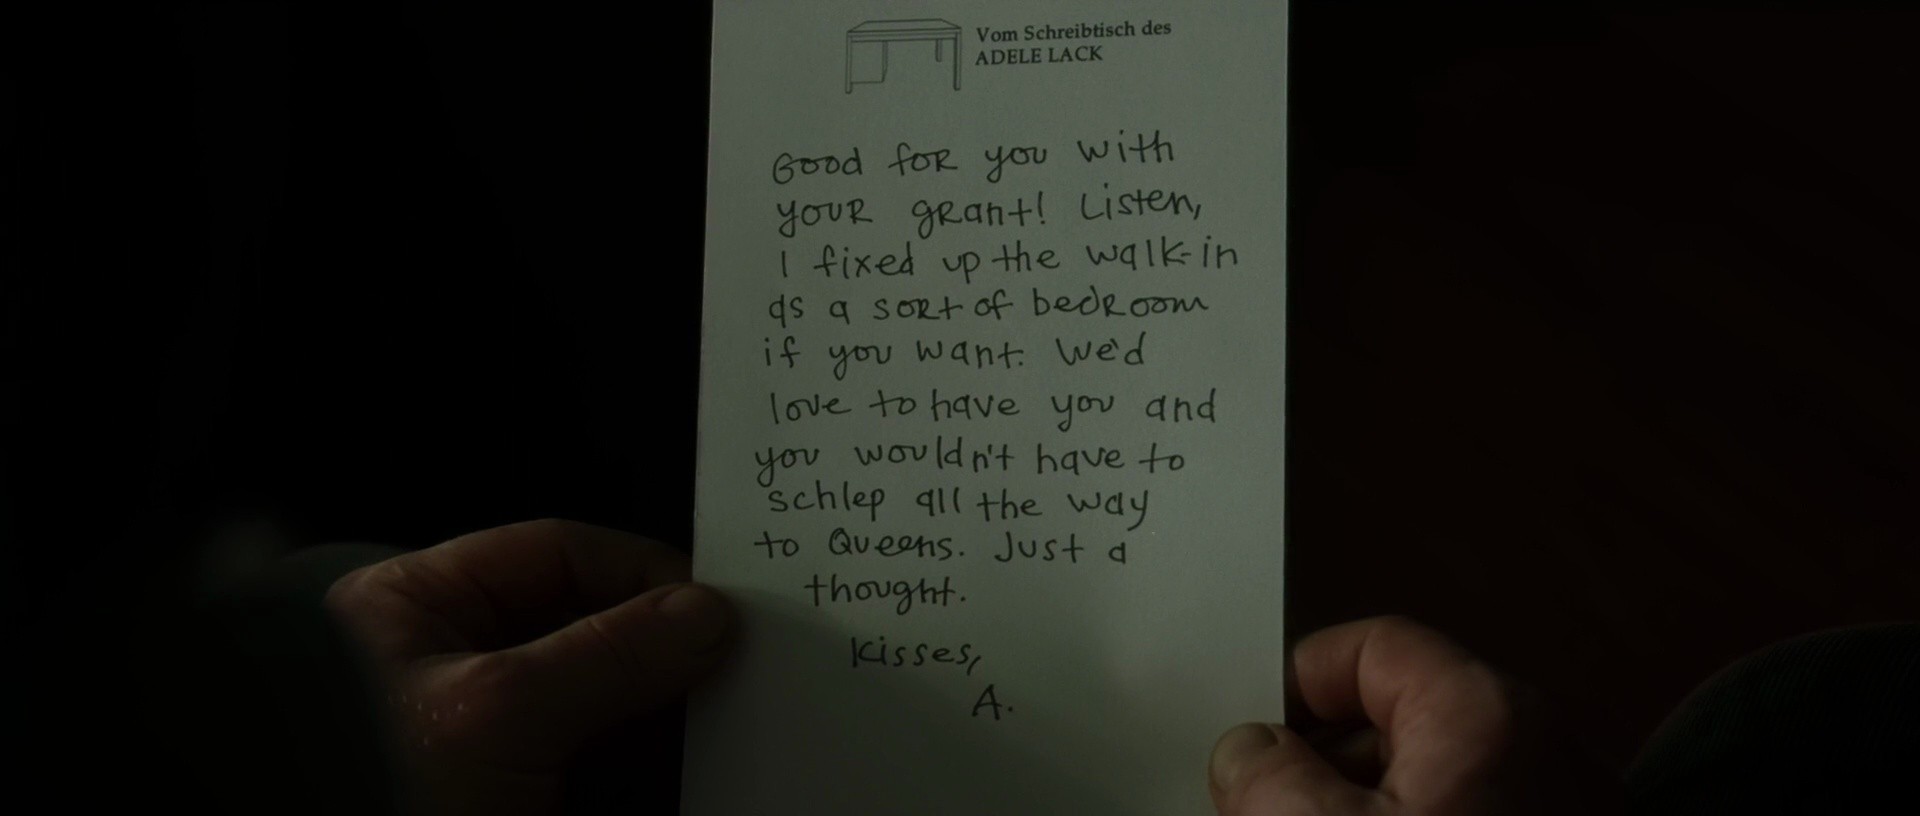 Vom Schreibtisch des
ADELE LACK
Good for you with
your grant! Listen,
I fixed up the walk-in
as a sort of bedroom
if you want. We'd
love to have you and
you wouldn't have to
schlep all the way
to Queens. Just a
thought.
Kisses,
A.